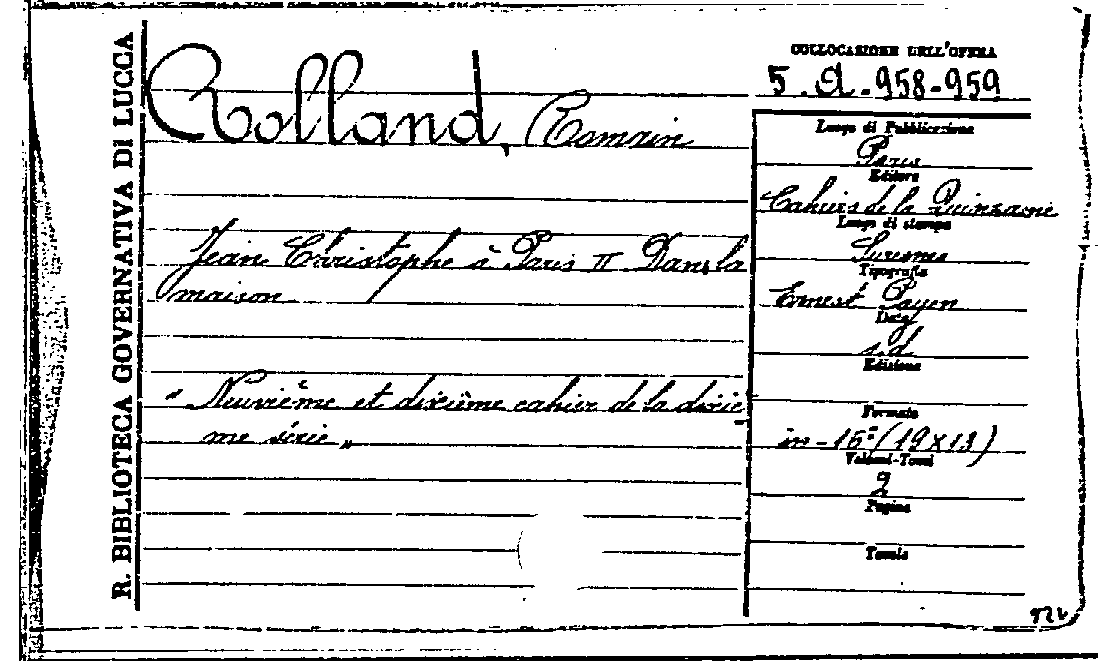 R. BIBLIOTECA GOVERNATIVA DI LUCCA
Rolland, Romain
Jean Christophe à Paris II Dans la
maison
" Neuvième et dixième cahier de la dixiè
me série "
COLLOCAZIONE DELL'OPERA
5. A. 958-959
Luogo di Pubblicazione
Paris
Editore
Cahiers de la Quinzaine
Luogo di stampa
Suresnes
Tipografia
Ernest Payen
Data
s.d.
Edizione
Formato
in-16° (19x13)
Volumi-Tomi
2
Pagine
Tavole